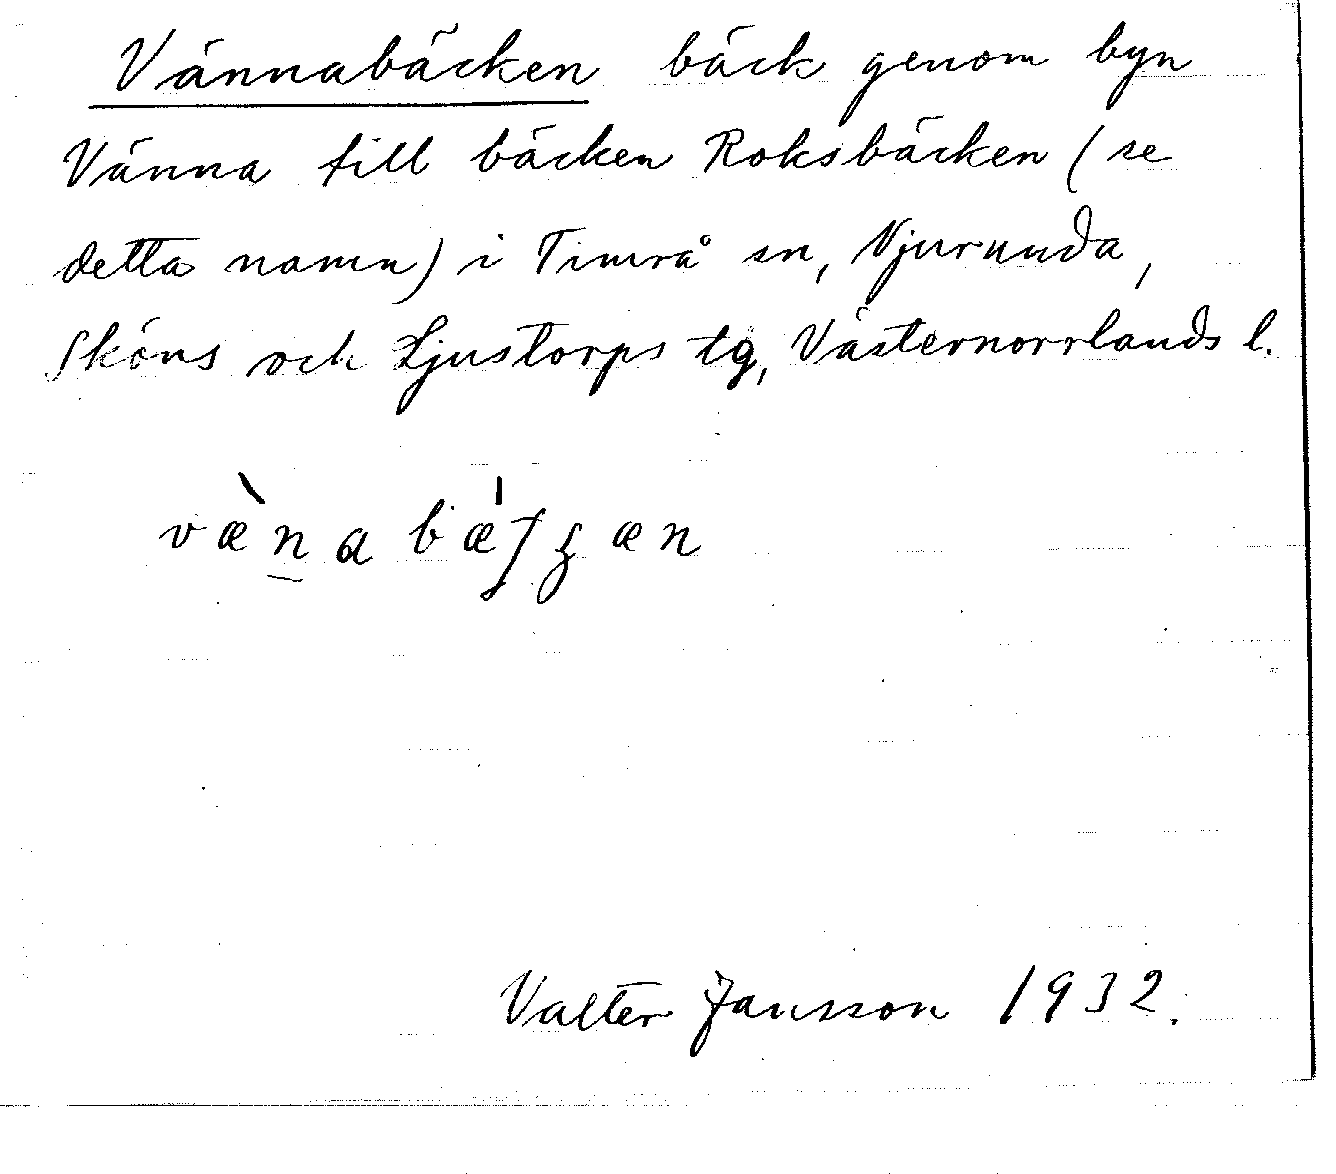 Vännabäcken bäck genom byn
Vänna till bäcken Roksbäcken (se
detta namn) i Timrå sn, Njurunda,
Sköns och Ljustorps tg, Västernorrlands l.
væ̀n̲abǽʃʒæn
Valter Jansson 1932.